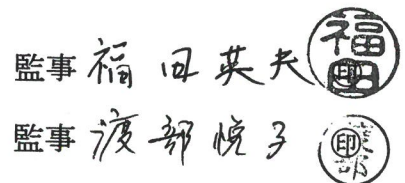 監事 福田英夫 福田 印
監事 渡部悦子 印 渡部